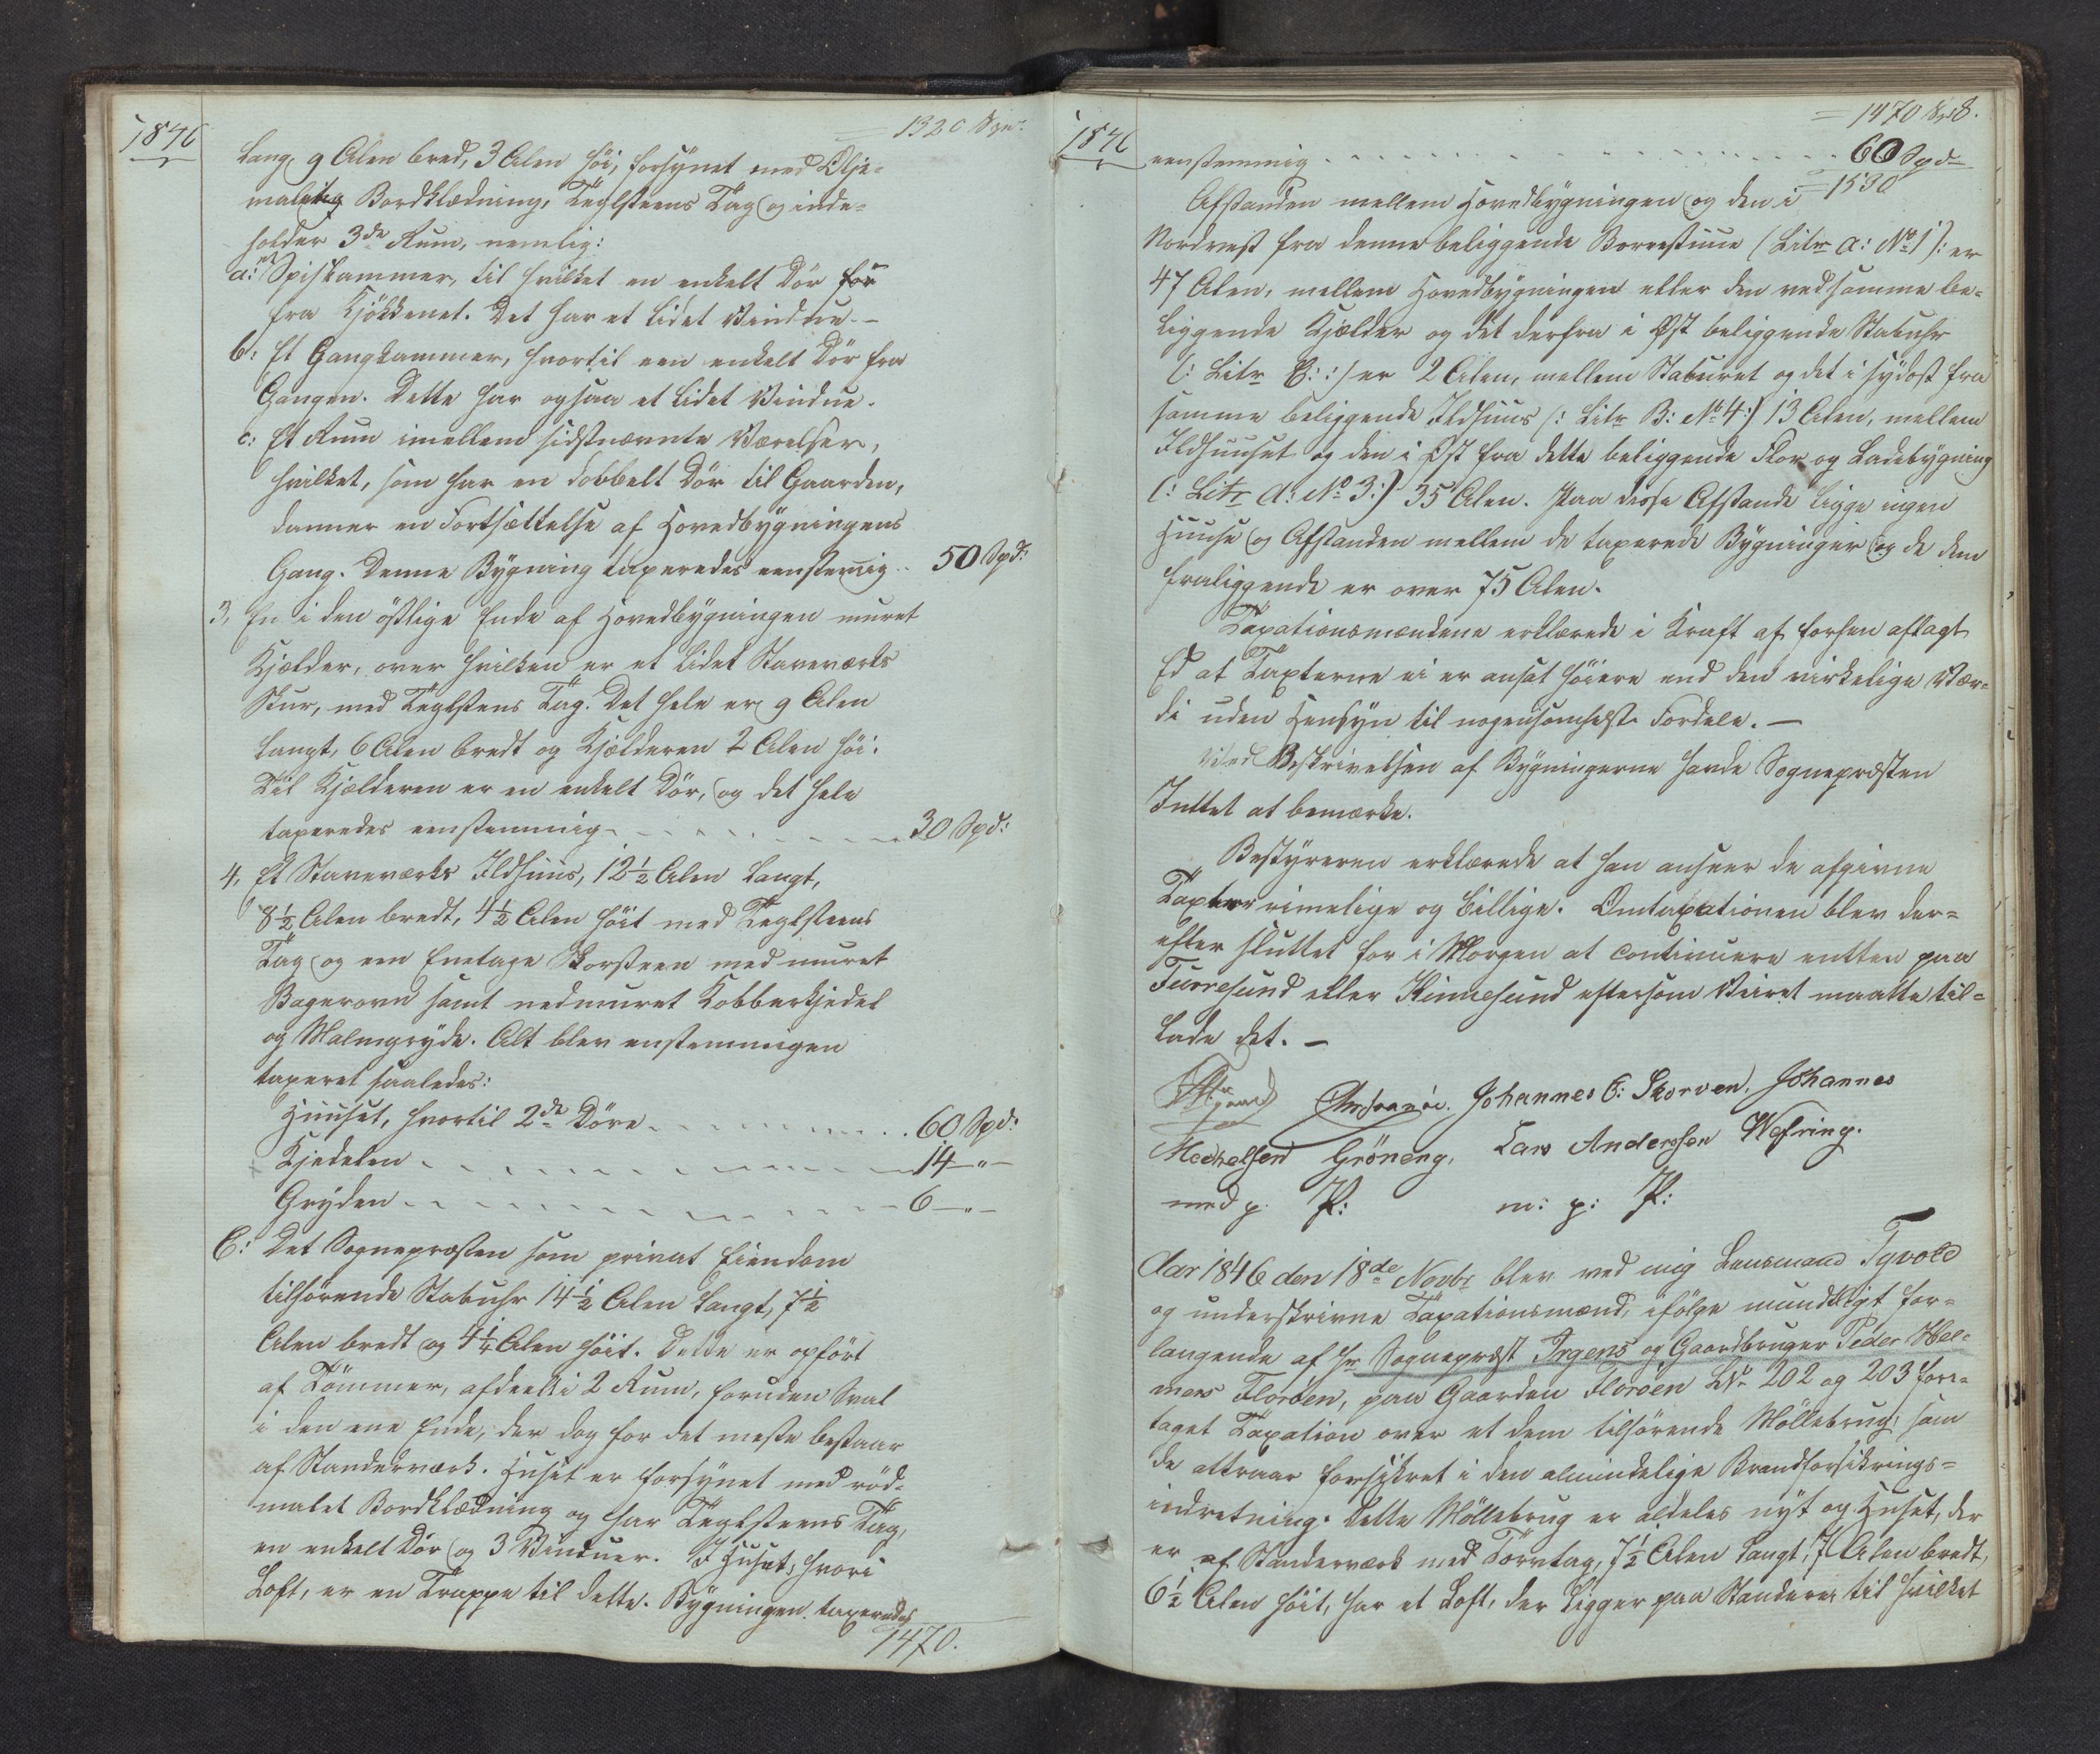 1846
= 1320 Spd.
lang, 9 Alen bred, 3 Alen höi, forsynet med Olje-
maling Bordklædning, Teglsteens Tag og inde-
holder 3de Rum, nemlig:
a: Spiskammer, til hvilket en enkelt Dör för
fra Kjökkenet. Det har et lidet Vindue. —
b: Et Gangkammer, hvortil een enkelt Dör fra
Gangen. Dette har ogsaa et lidet Vindue.
c: Et Rum imellem sidstnævnte Værelser,
hvilket, som har en dobbelt Dör til Gaarden,
danner en Fortsættelse af Hovedbygningens
Gang. Denne Bygning taxeredes eenstemig .. 50 Spd:
3, En i den östlige Ende af Hovedbygningen muret
Kjælder, over hvilken er et lidet Staveværks
Skur, med Teglsteens Tag. Det hele er 9 Alen
langt, 6 Alen bredt og Kjælderen 2 Alen höi.
Til Kjælderen er en enkelt Dör, og det hele
taxeredes eenstemmig - - - - 30 Spd:
4, Et Staveværks Ildhuus, 12½ Alen langt,
8½ Alen bredt, 4½ Alen höit med Teglsteens
Tag og een Enetage Skorsteen med muret
Bagerovn samt nedmuret Kobberkjedel
og Malmgryde. Alt blev enstemmigen
taxeret saaledes:
Huuset, hvortil 2de Döre - - - - 60 Spd:
Kjedelen - - - - 14 — " —
Gryden - - - - 6 — " —
C: Det Sognepræsten som privat Eiendom
tilhörende Stabuhr 14½ Alen langt, 7½
Alen bredt og 4¼ Alen höit. Dette er opfört
af Tömmer, afdeelt i 2 Rum, foruden Sval
i den ene Ende, der dog for det meste bestaar
af Standerværk. Huset er forsynet med röd-
malet Bordklædning og har Teglsteens Tag,
en enkelt Dör og 3 Vinduer. I Huset, hvori
Loft, er en Trappe til dette. Bygningen taxeredes
1470.
1846
= 1470 Spd.
eenstemmig - - - - 60 Spd
= 1530
Afstanden mellem Hovedbygningen og den i
Nordvest fra denne beliggende Borrestuue (Litr a: No 1): er
47 Alen, mellem Hovedbygningen eller den ved samme be-
liggende Kjælder og det derfra i Öst beliggende Stabuhr
(: Litr C: :) er 2 Alen, mellem Staburet og det i Sydost fra
samme beliggende Ildhuus (: Litr B: No 4:) 13 Alen, mellem
Ildhuuset og den i Öst fra dette beliggende Flor og Ladebygning
(: Litr A: No 3:) 35 Alen. Paa disse Afstande ligge ingen
Huuse og Afstanden mellem de taxerede Bygninger og de dem
fraliggende er over 75 Alen.
Taxationsmændene erklærede i Kraft af forhen aflagt
Ed at Taxterne ei er ansat höiere end den virkelige Vær-
di uden Hensyn til nogensomhelst Fordele. —
Ved Beskrivelsen af Bygningerne havde Sognepræsten
Intet at bemærke.
Bestyreren erklærede at han anseer de afgivne
Taxter rimelige og billige. Omtaxationen blev der-
efter sluttet for i Morgen at continuere entten paa
Furresund eller Kinnesund eftersom Veiret maatte til-
lade det. —
Johannes O: Skorven, Johannes
Mechelsen Gröneng, Lars Anderssen Wefring.
med p. P: m: p: P:
Aar 1846 den 18de Novbr blev ved mig Lensmand Tyvold
og underskrivne Taxationsmænd, ifölge mundtligt for-
langende af Hr Sognepræst Irgens og Gaardbruger Peder Hel-
mers Floröen, paa Gaarden Floröen LN. 202 og 203 fore-
taget Taxation over et dem tilhörende Möllebrug, som
de attraar forsikret i den almindelige Brandforsikrings-
indretning. Dette Möllebrug er aldeles nyt og Huset, der
er af Standerværk med Törvtag, 7½ Alen langt, 7 Alen bredt,
6½ Alen höit, har et Loft, der ligger paa Standere, til hvilket